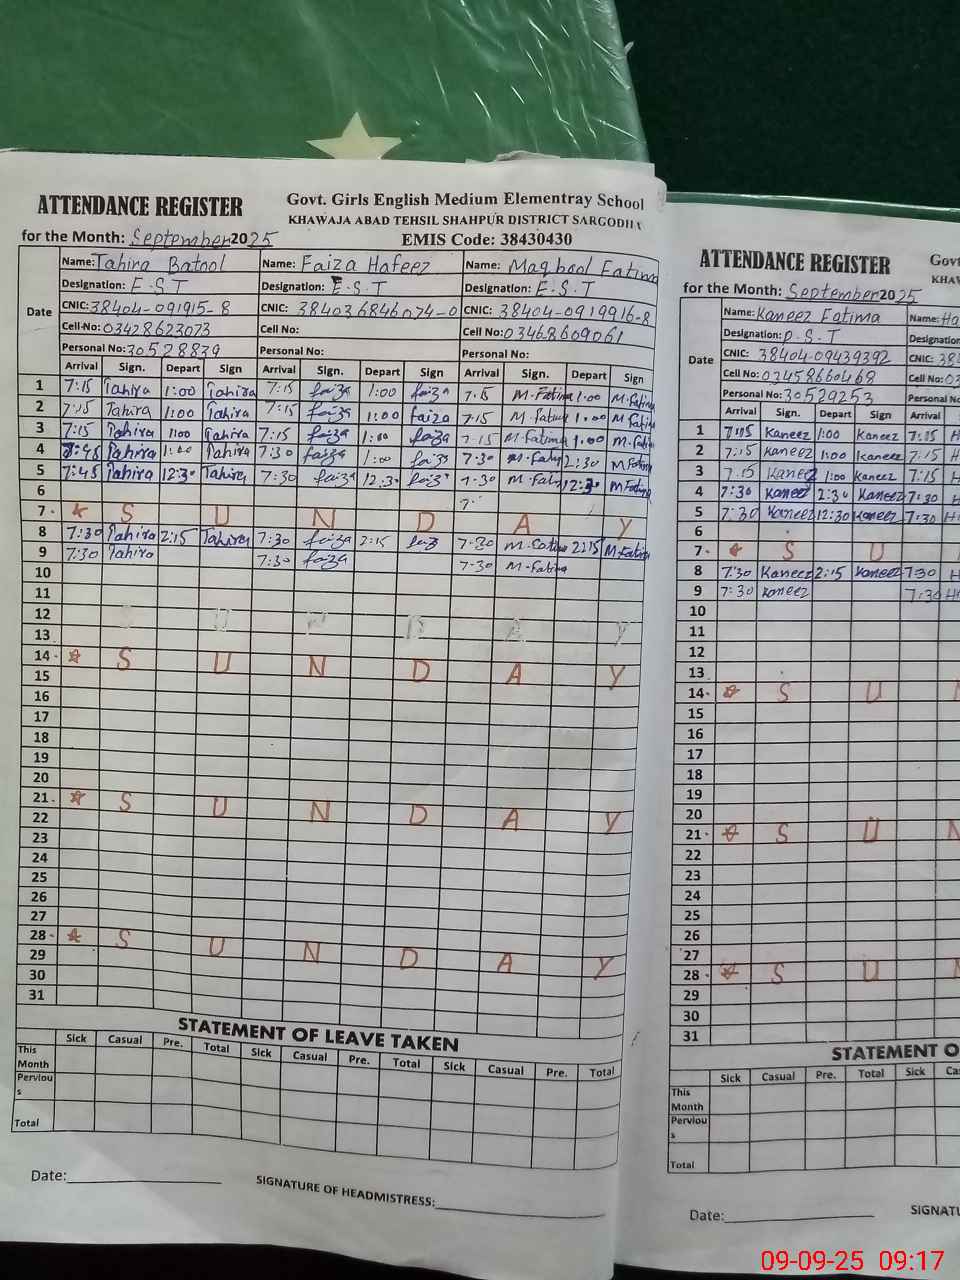 ATTENDANCE REGISTER
Govt. Girls English Medium Elementray School
KHAWAJA ABAD TEHSIL SHAHPUR DISTRICT SARGODHA
for the Month: September 2025
EMIS Code: 38430430
Date
Name: Tahira Batool Name: Faiza Hafeez Name: Maqbool Fatima
Designation: E.S.T Designation: E.S.T Designation: E.S.T
CNIC: 38404-091915-8 CNIC: 384036846074-0 CNIC: 38404-0919916-8
Cell-No: 03428623073 Cell No: Cell No: 03468609061
Personal No: 30528839 Personal No: Personal No:
Arrival Sign. Depart Sign. Arrival Sign. Depart Sign Arrival Sign. Depart Sign
1 7:15 Tahira 1:00 Tahira 7:15 faiza 1:00 faiza 7:15 M.Fatima 1:00 M.Fatima
2 7:15 Tahira 1:00 Tahira 7:15 faiza 1:00 faiza 7:15 M.Fatima 1:00 M.Fatima
3 7:15 Tahira 1:00 Tahira 7:15 faiza 1:00 faiza 7:15 M.Fatima 1:00 M.Fatima
4 Tahira 1:00 Tahira 7:30 faiza 1:00 faiza 7:30 M.Fatima 2:30 M.Fatima
5 7:45 Tahira 12:30 Tahira 7:30 faiza 12:30 faiza 7:30 M.Fatima 12:30 M.Fatima
6
7 S U N D A Y
8 7:30 Tahira 2:15 Tahira 7:30 faiza 2:15 faiza 7:30 M.Fatima 2:15 M.Fatima
9 7:30 Tahira 7:30 faiza 7:30 M.Fatima
10
11
12
13
14 S U N D A Y
15
16
17
18
19
20
21 S U N D A Y
22
23
24
25
26
27
28 S U N D A Y
29
30
31
STATEMENT OF LEAVE TAKEN
Sick Casual Pre. Total Sick Casual Pre. Total Sick Casual Pre. Total
This Month
Perviou
s
Total
Date:
SIGNATURE OF HEADMISTRESS:
ATTENDANCE REGISTER
Govt
KHAW
for the Month: September 2025
Date
Name: Kaneez Fatima Name: Ha
Designation: P.S.T Designation
CNIC: 38404-09439392 CNIC: 384
Cell No: 03458660468 Cell No: 03
Personal No: 30529253 Personal No
Arrival Sign. Depart Sign Arrival
1 7:15 Kaneez 1:00 Kaneez 7:15 H
2 7:15 Kaneez 1:00 Kaneez 7:15 H
3 7:15 Kaneez 1:00 Kaneez 7:15 H
4 7:30 Kaneez 2:30 Kaneez 7:30 H
5 7:30 Kaneez 12:30 Kaneez 7:30 H
6
7 S U
8 7:30 Kaneez 2:15 Kaneez 7:30 H
9 7:30 Kaneez 7:30 H
10
11
12
13
14 S U N
15
16
17
18
19
20
21 S U N
22
23
24
25
26
27
28 S U N
29
30
31
STATEMENT O
Sick Casual Pre. Total Sick Ca
This Month
Perviou
s
Total
Date:
SIGNATU
09-09-25 09:17